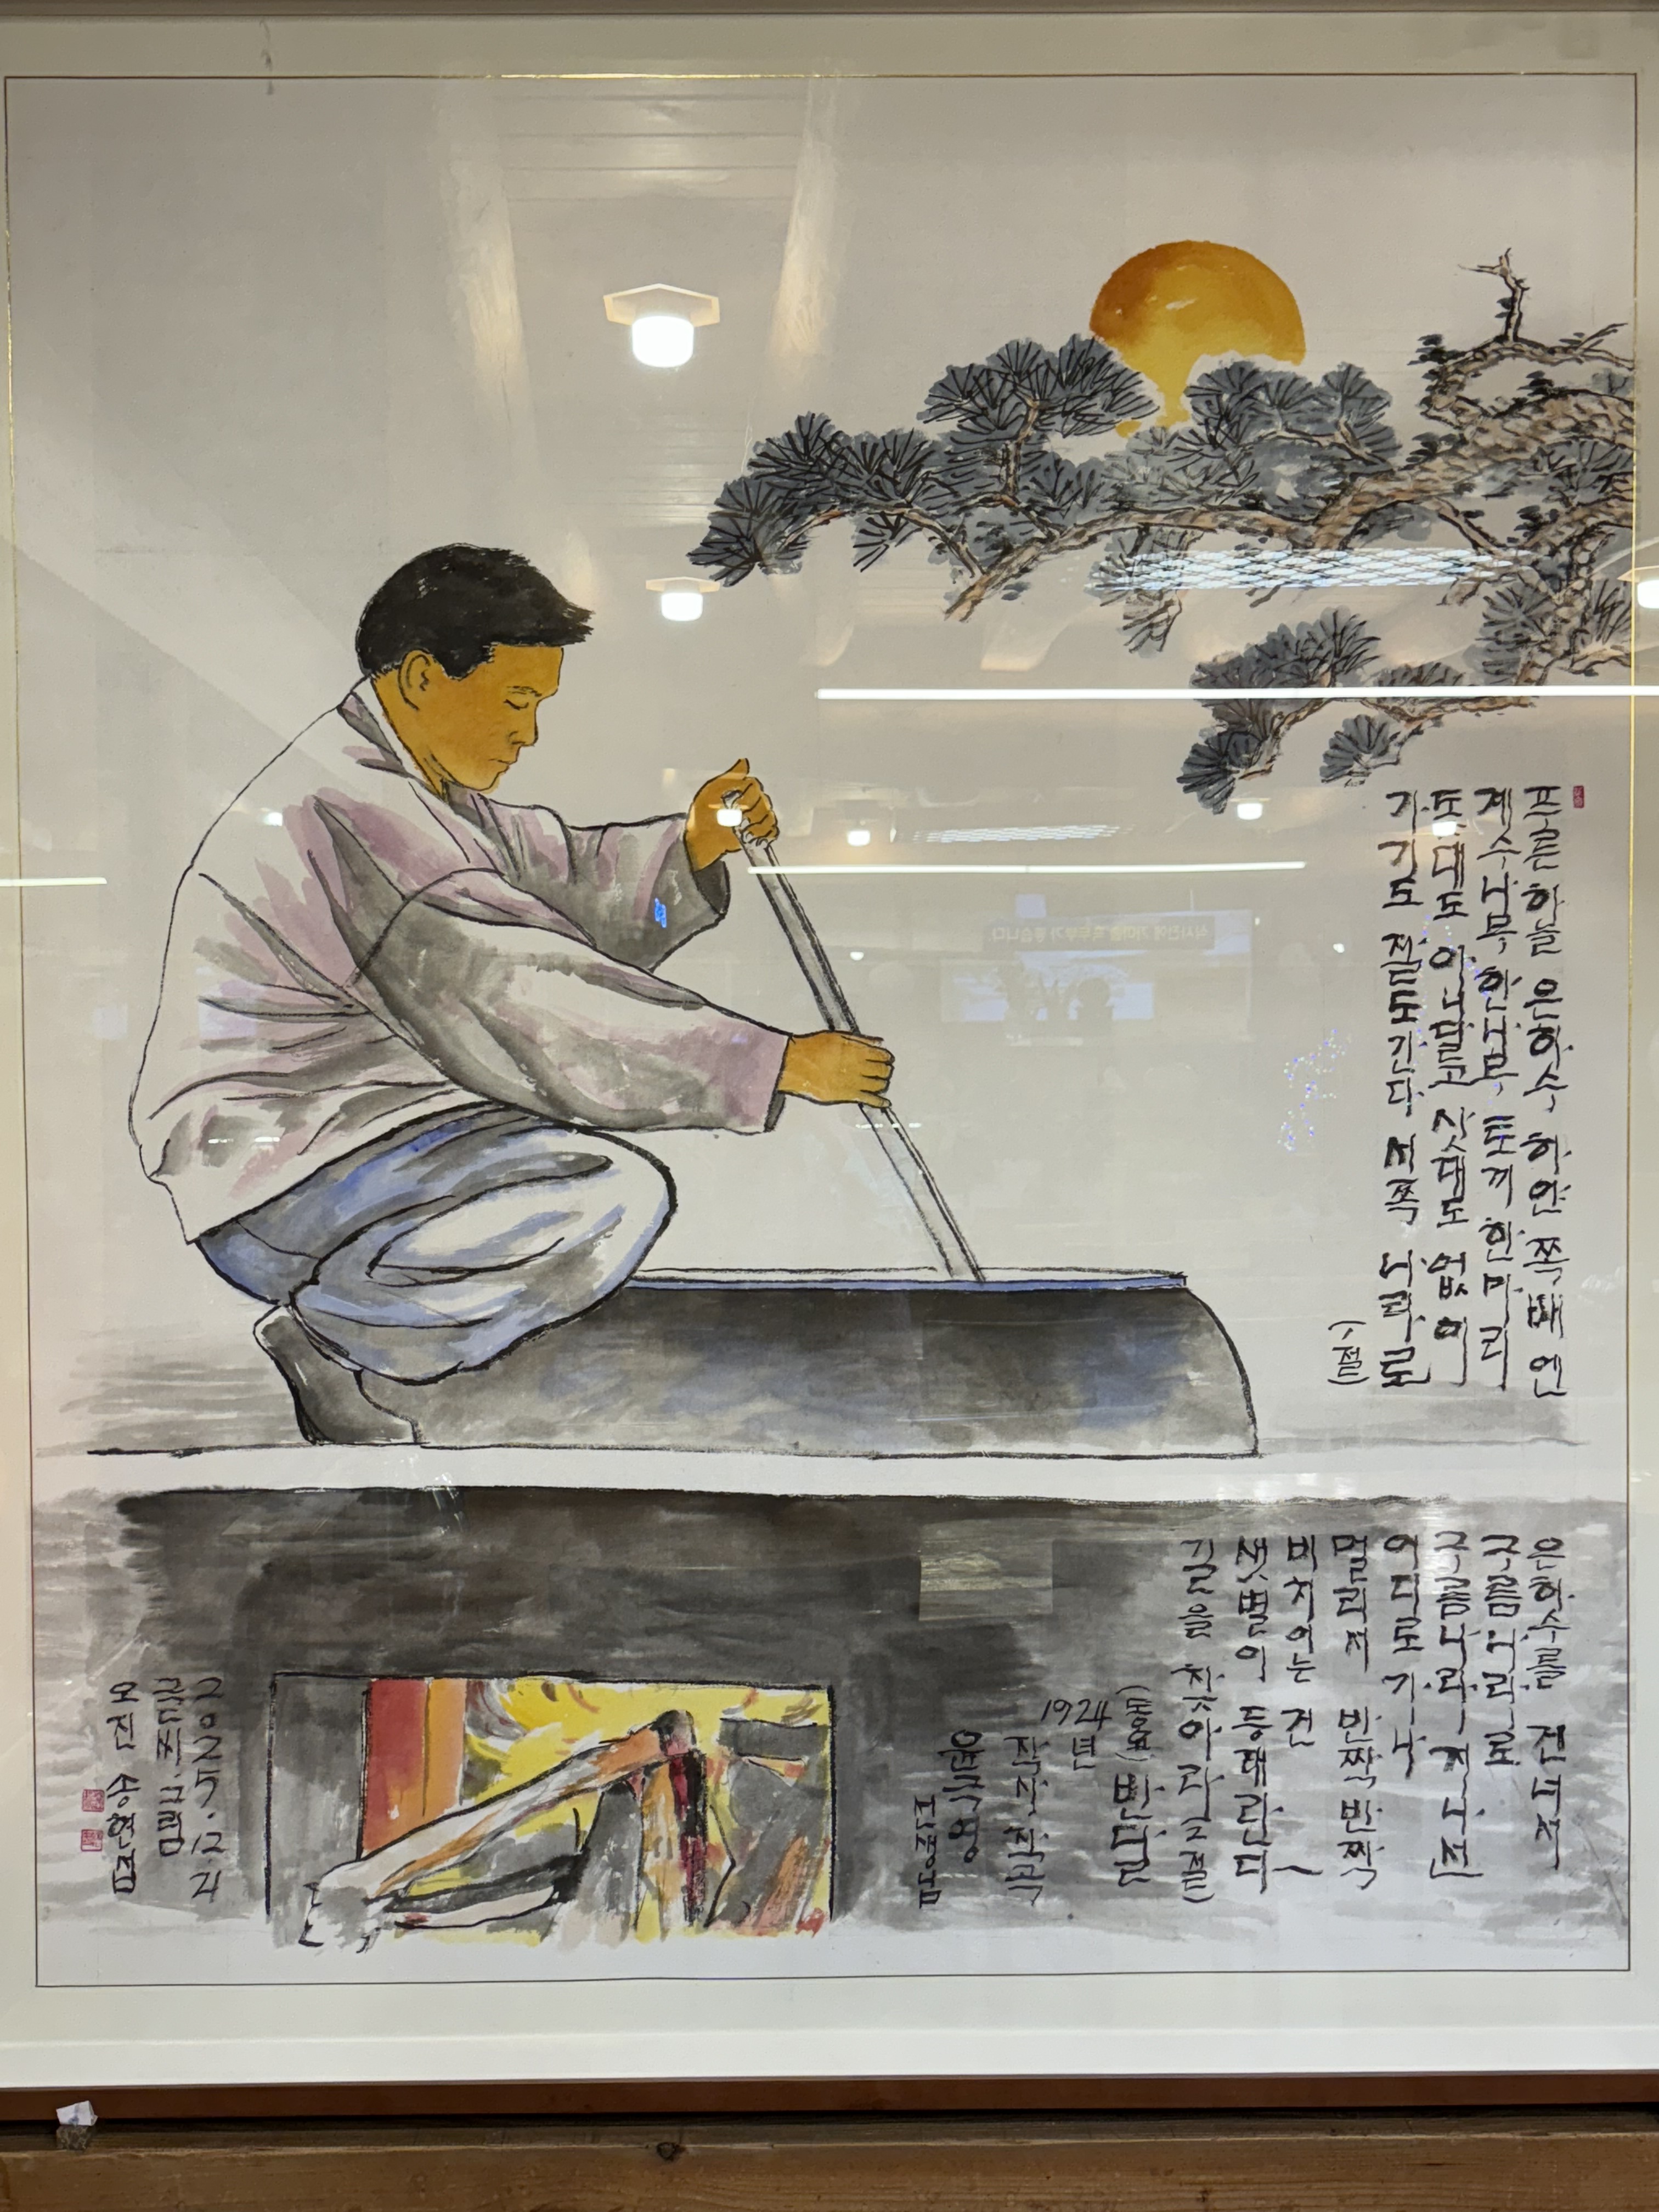 푸른하늘 은하수 하얀쪽배엔
계수나무 한나무 토끼 한마리
돛대도 아니달고 삿대도 없이
가기도 잘도간다 서쪽 나라로
(1절)
은하수를 건너서
구름나라로
구름나라 지나선
어디로 가나
멀리서 반짝반짝
비치이는 건
샛별이 등대란다
길을 찾아라(2절)
(동요) 반달
1924년
작사 작곡
윤극영
선생님
2025.12
글씨.그림